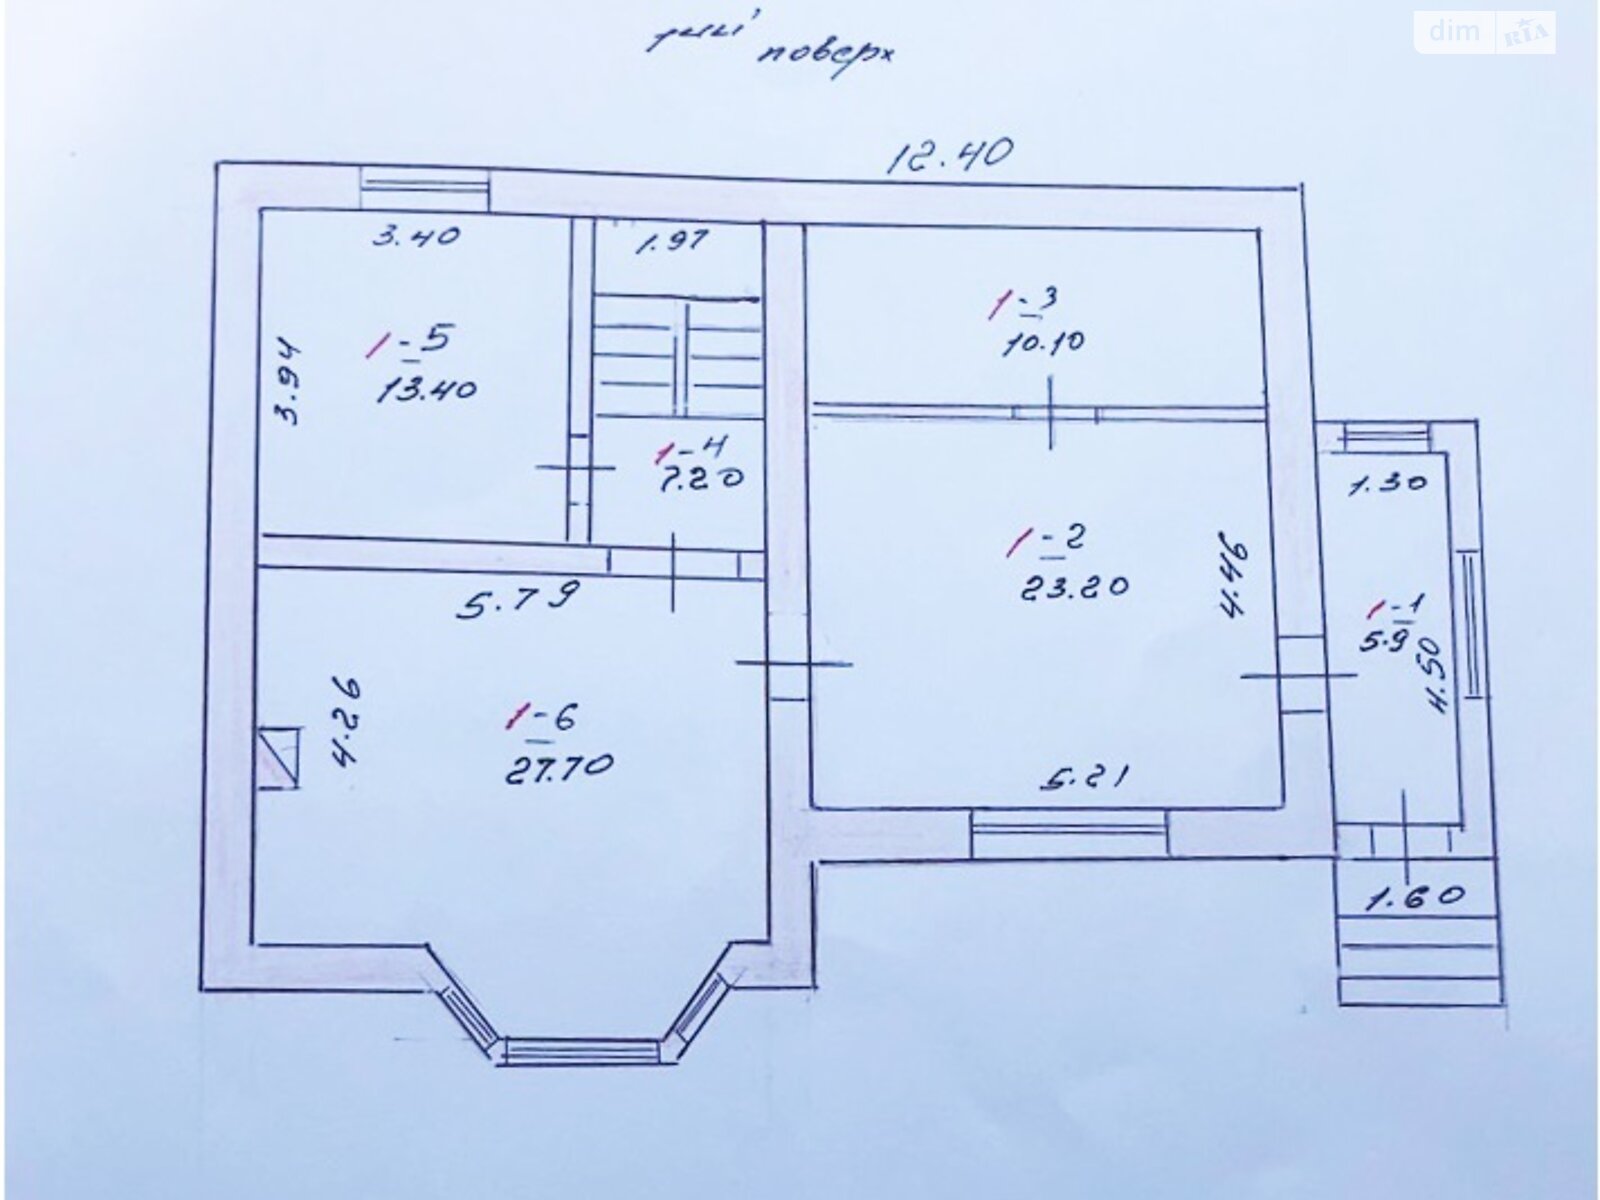 1ший поверх
dim RIA
12.40
3.40
1.97
1-3
10.10
1-5
13.40
3.94
1-4
7.20
1.30
1-2
23.20
4.46
5.79
1-1
5.9
4.50
4.26
1-6
27.70
5.21
1.60